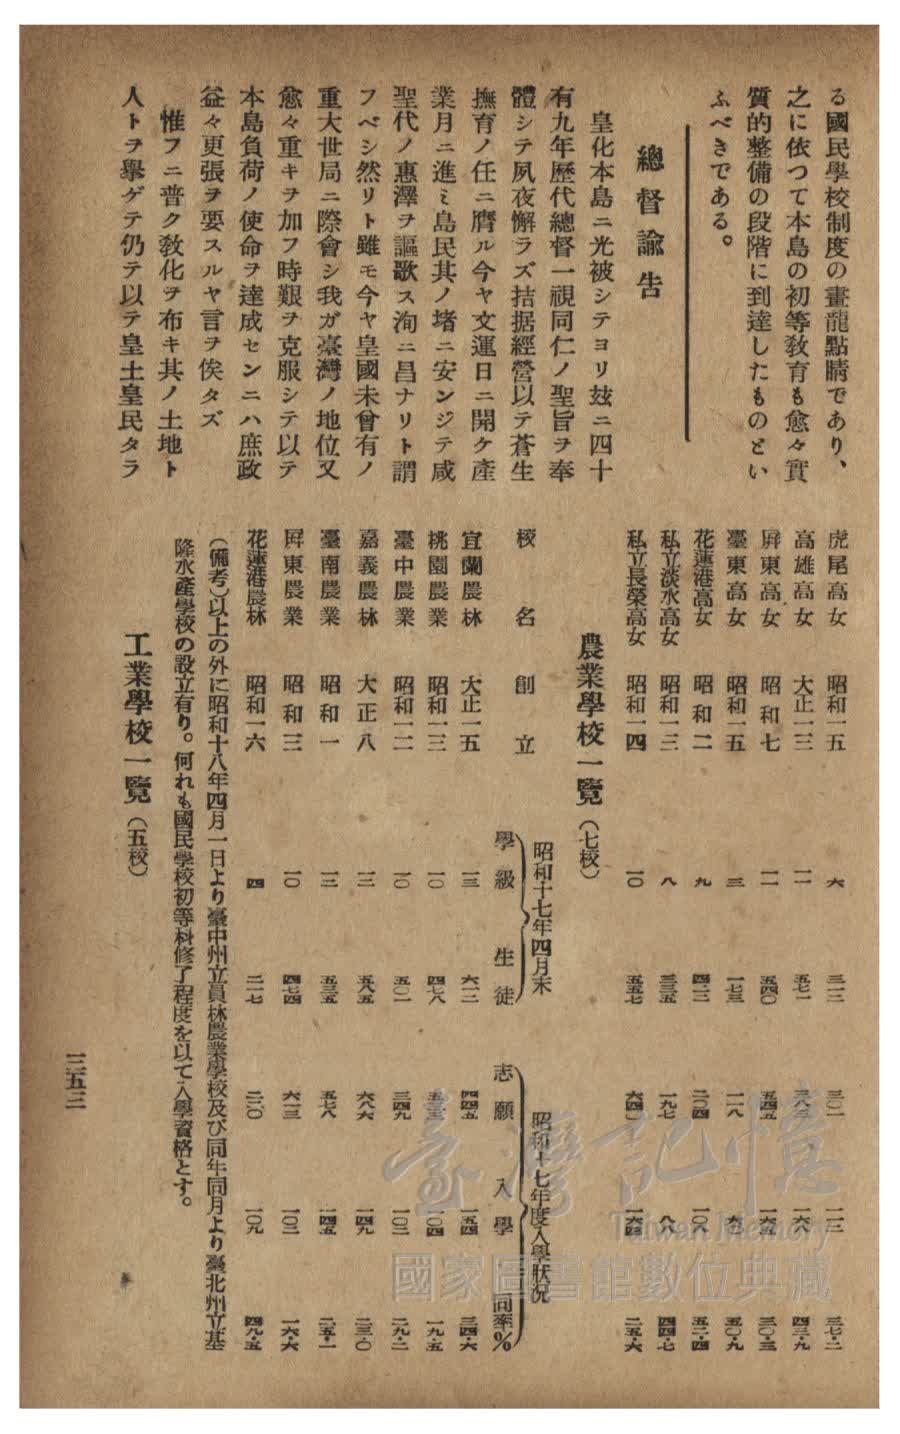 る國民學校制度の畫龍點睛であり、
之に依つて本島の初等敎育も愈々實
質的整備の段階に到達したものとい
ふべきである。
總督諭告
皇化本島ニ光被シテヨリ玆ニ四十
有九年歷代總督一視同仁ノ聖旨ヲ奉
體シテ夙夜懈ラズ拮据經營以テ蒼生
撫育ノ任ニ膺ル今ヤ文運日ニ開ケ產
業月ニ進ミ島民其ノ堵ニ安ンジテ咸
聖代ノ惠澤ヲ謳歌ス洵ニ昌ナリト謂
フベシ然リト雖モ今ヤ皇國未曾有ノ
重大世局ニ際會シ我ガ臺灣ノ地位又
愈々重キヲ加フ時艱ヲ克服シテ以テ
本島負荷ノ使命ヲ達成センニハ庶政
益々更張ヲ要スルヤ言ヲ俟タズ
惟フニ普ク敎化ヲ布キ其ノ土地ト
人トヲ擧ゲテ仍テ以テ皇土皇民タラ
虎尾高女 昭和一五 六
高雄高女 大正一三
屛東高女 昭和七
臺東高女 昭和一五 三
花蓮港高女 昭和二 九
私立淡水高女 昭和一三 八
私立長榮高女 昭和一四 一〇 五五七
農業學校一覽(七校)
昭和十七年四月末
昭和十七年度入學狀況
校名 創立 學級 生徒 志願 入學 同率%
宜蘭農林 大正一五 一三 六一二 四四五 一五四 三四・六
桃園農業 昭和一三 一〇 四七八 一〇四 一九・五
臺中農業 昭和一二 一〇 五〇一 三四九 一〇二 二九・二
嘉義農林 大正八 一三 五八五 六八六 一四九
臺南農業 昭和一 一三 五三五 五七八 一四五 二五・一
屛東農業 昭和三 一〇 四七四 六一三 一〇二 一六・六
花蓮港農林 昭和一六 四 二一七 二二〇 一〇九 四九・五
(備考)以上の外に昭和十八年四月一日より臺中州立員林農業學校及び同年同月より臺北州立基
隆水產學校の設立有り。何れも國民學校初等科修了程度を以て入學資格とす。
工業學校一覽(五校)
三五三
臺灣記憶
Taiwan Memory
國家圖書館數位典藏